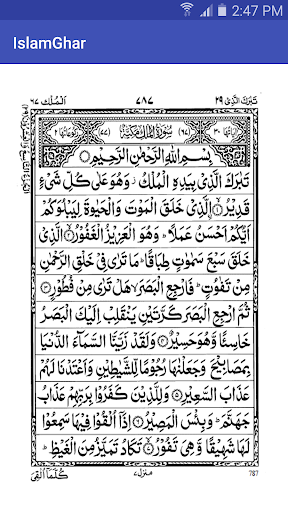 2:47 PM
IslamGhar
تَبٰرَكَ الَّذِیْ ٢٩
٧٨٧
اَلْمُلْك ٦٧
سُوْرَةُ الْمُلْكِ مَكِّيَّةٌ
بِسْمِ اللّٰهِ الرَّحْمٰنِ الرَّحِيْمِ
تَبٰرَكَ الَّذِیْ بِيَدِهِ الْمُلْكُ ز وَهُوَ عَلٰى كُلِّ شَیْءٍ
قَدِيْرُ ۙ﴿١﴾ الَّذِیْ خَلَقَ الْمَوْتَ وَالْحَيٰوةَ لِيَبْلُوَكُمْ
اَيُّكُمْ اَحْسَنُ عَمَلًا ؕ وَهُوَ الْعَزِيْزُ الْغَفُوْرُ ۙ﴿٢﴾ الَّذِیْ
خَلَقَ سَبْعَ سَمٰوٰتٍ طِبَاقًا ؕ مَا تَرٰى فِیْ خَلْقِ الرَّحْمٰنِ
مِنْ تَفٰوُتٍ ؕ فَارْجِعِ الْبَصَرَ ۙ هَلْ تَرٰى مِنْ فُطُوْرٍ ﴿٣﴾
ثُمَّ ارْجِعِ الْبَصَرَ كَرَّتَيْنِ يَنْقَلِبْ اِلَيْكَ الْبَصَرُ
خَاسِئًا وَّهُوَ حَسِيْرٌ ﴿٤﴾ وَلَقَدْ زَيَّنَّا السَّمَآءَ الدُّنْيَا
بِمَصَابِيْحَ وَجَعَلْنٰهَا رُجُوْمًا لِّلشَّيٰطِيْنِ وَاَعْتَدْنَا لَهُمْ
عَذَابَ السَّعِيْرِ ﴿٥﴾ وَلِلَّذِيْنَ كَفَرُوْا بِرَبِّهِمْ عَذَابُ
جَهَنَّمَ ؕ وَبِئْسَ الْمَصِيْرُ ﴿٦﴾ اِذَاۤ اُلْقُوْا فِيْهَا سَمِعُوْا
لَهَا شَهِيْقًا وَّهِیَ تَفُوْرُ ۙ﴿٧﴾ تَكَادُ تَمَيَّزُ مِنَ الْغَيْظِ ؕ
كُلَّمَاۤ اُلْقِیَ
منزل ٧
787